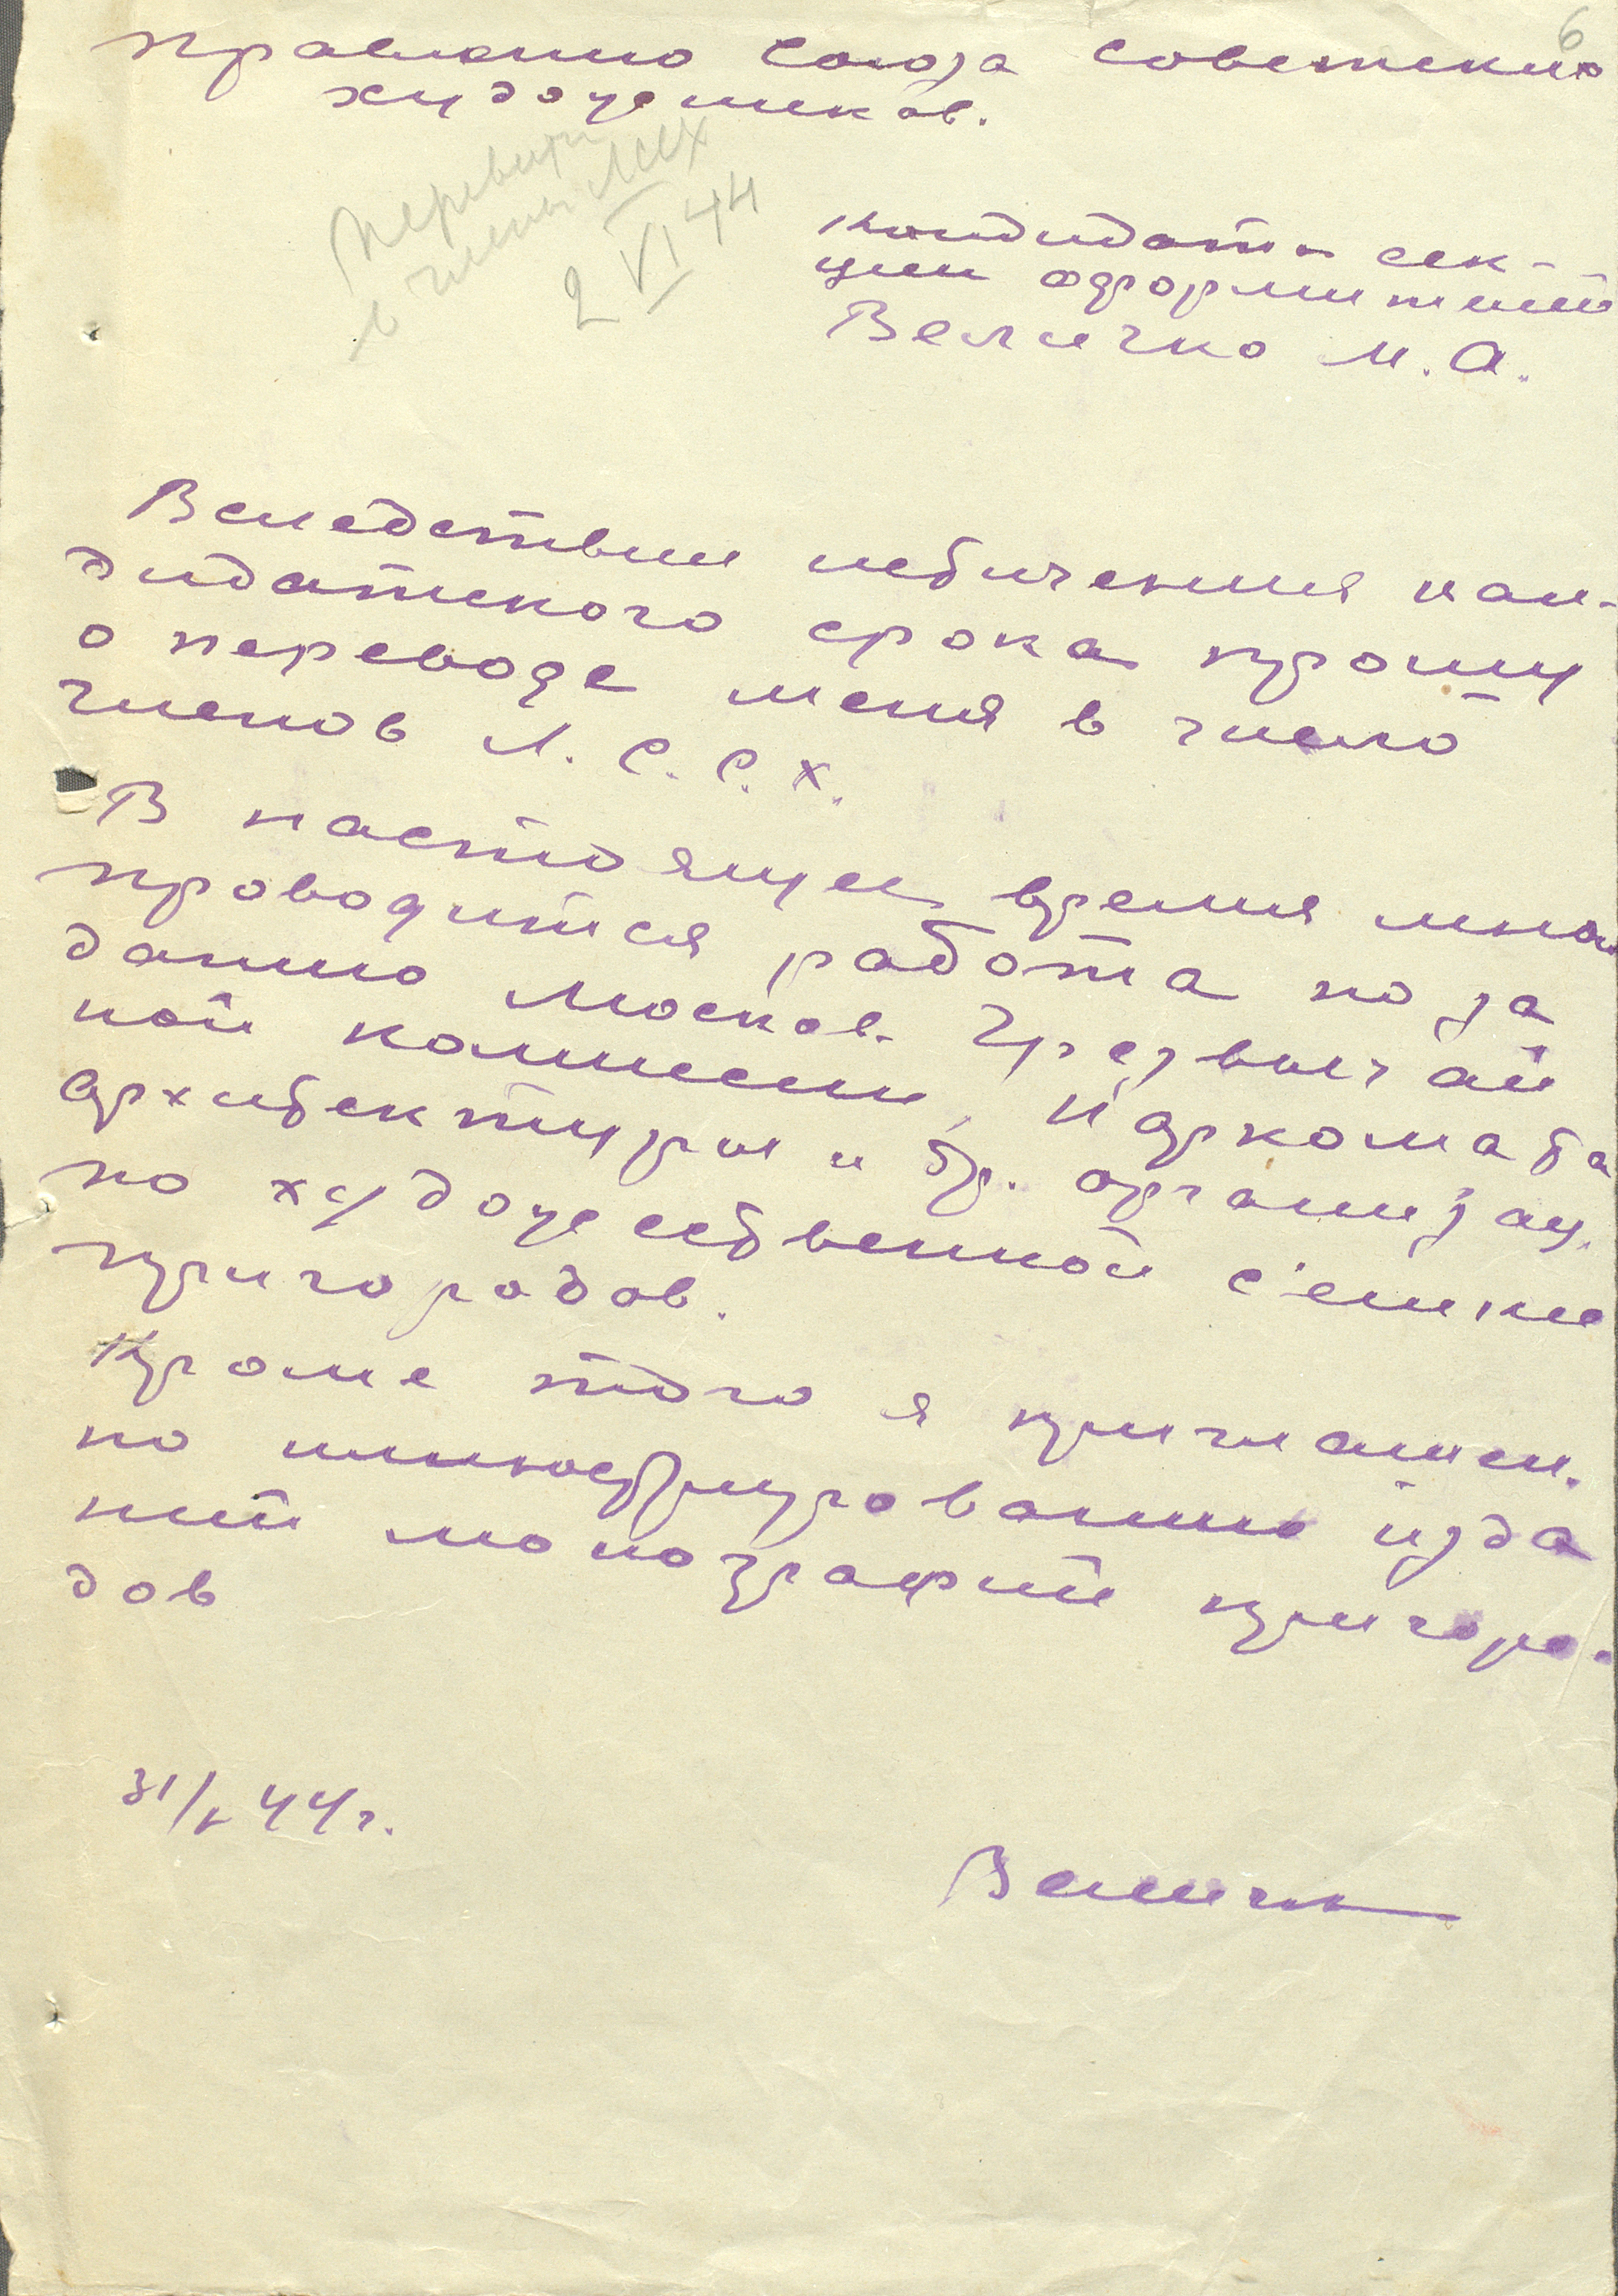 6
Правлению союза советских
художников.
Перевести
в члены ЛССХ
2 VI 44
Кандидата сек-
ции оформителей
Величко М. А.
Вследствии истечения кан-
дидатского срока прошу
о переводе меня в число
членов Л. С. С. Х.
В настоящее время мною
проводится работа по за
данию Москов. Чрезвычай
ной комиссии, Наркомата
Архитектуры и др. организац.
по художественной с'емке
пригородов.
Кроме того я приглашен.
по иллюстрированию изда
ний монографий пригоро-
дов
31/V 44 г.
Величко